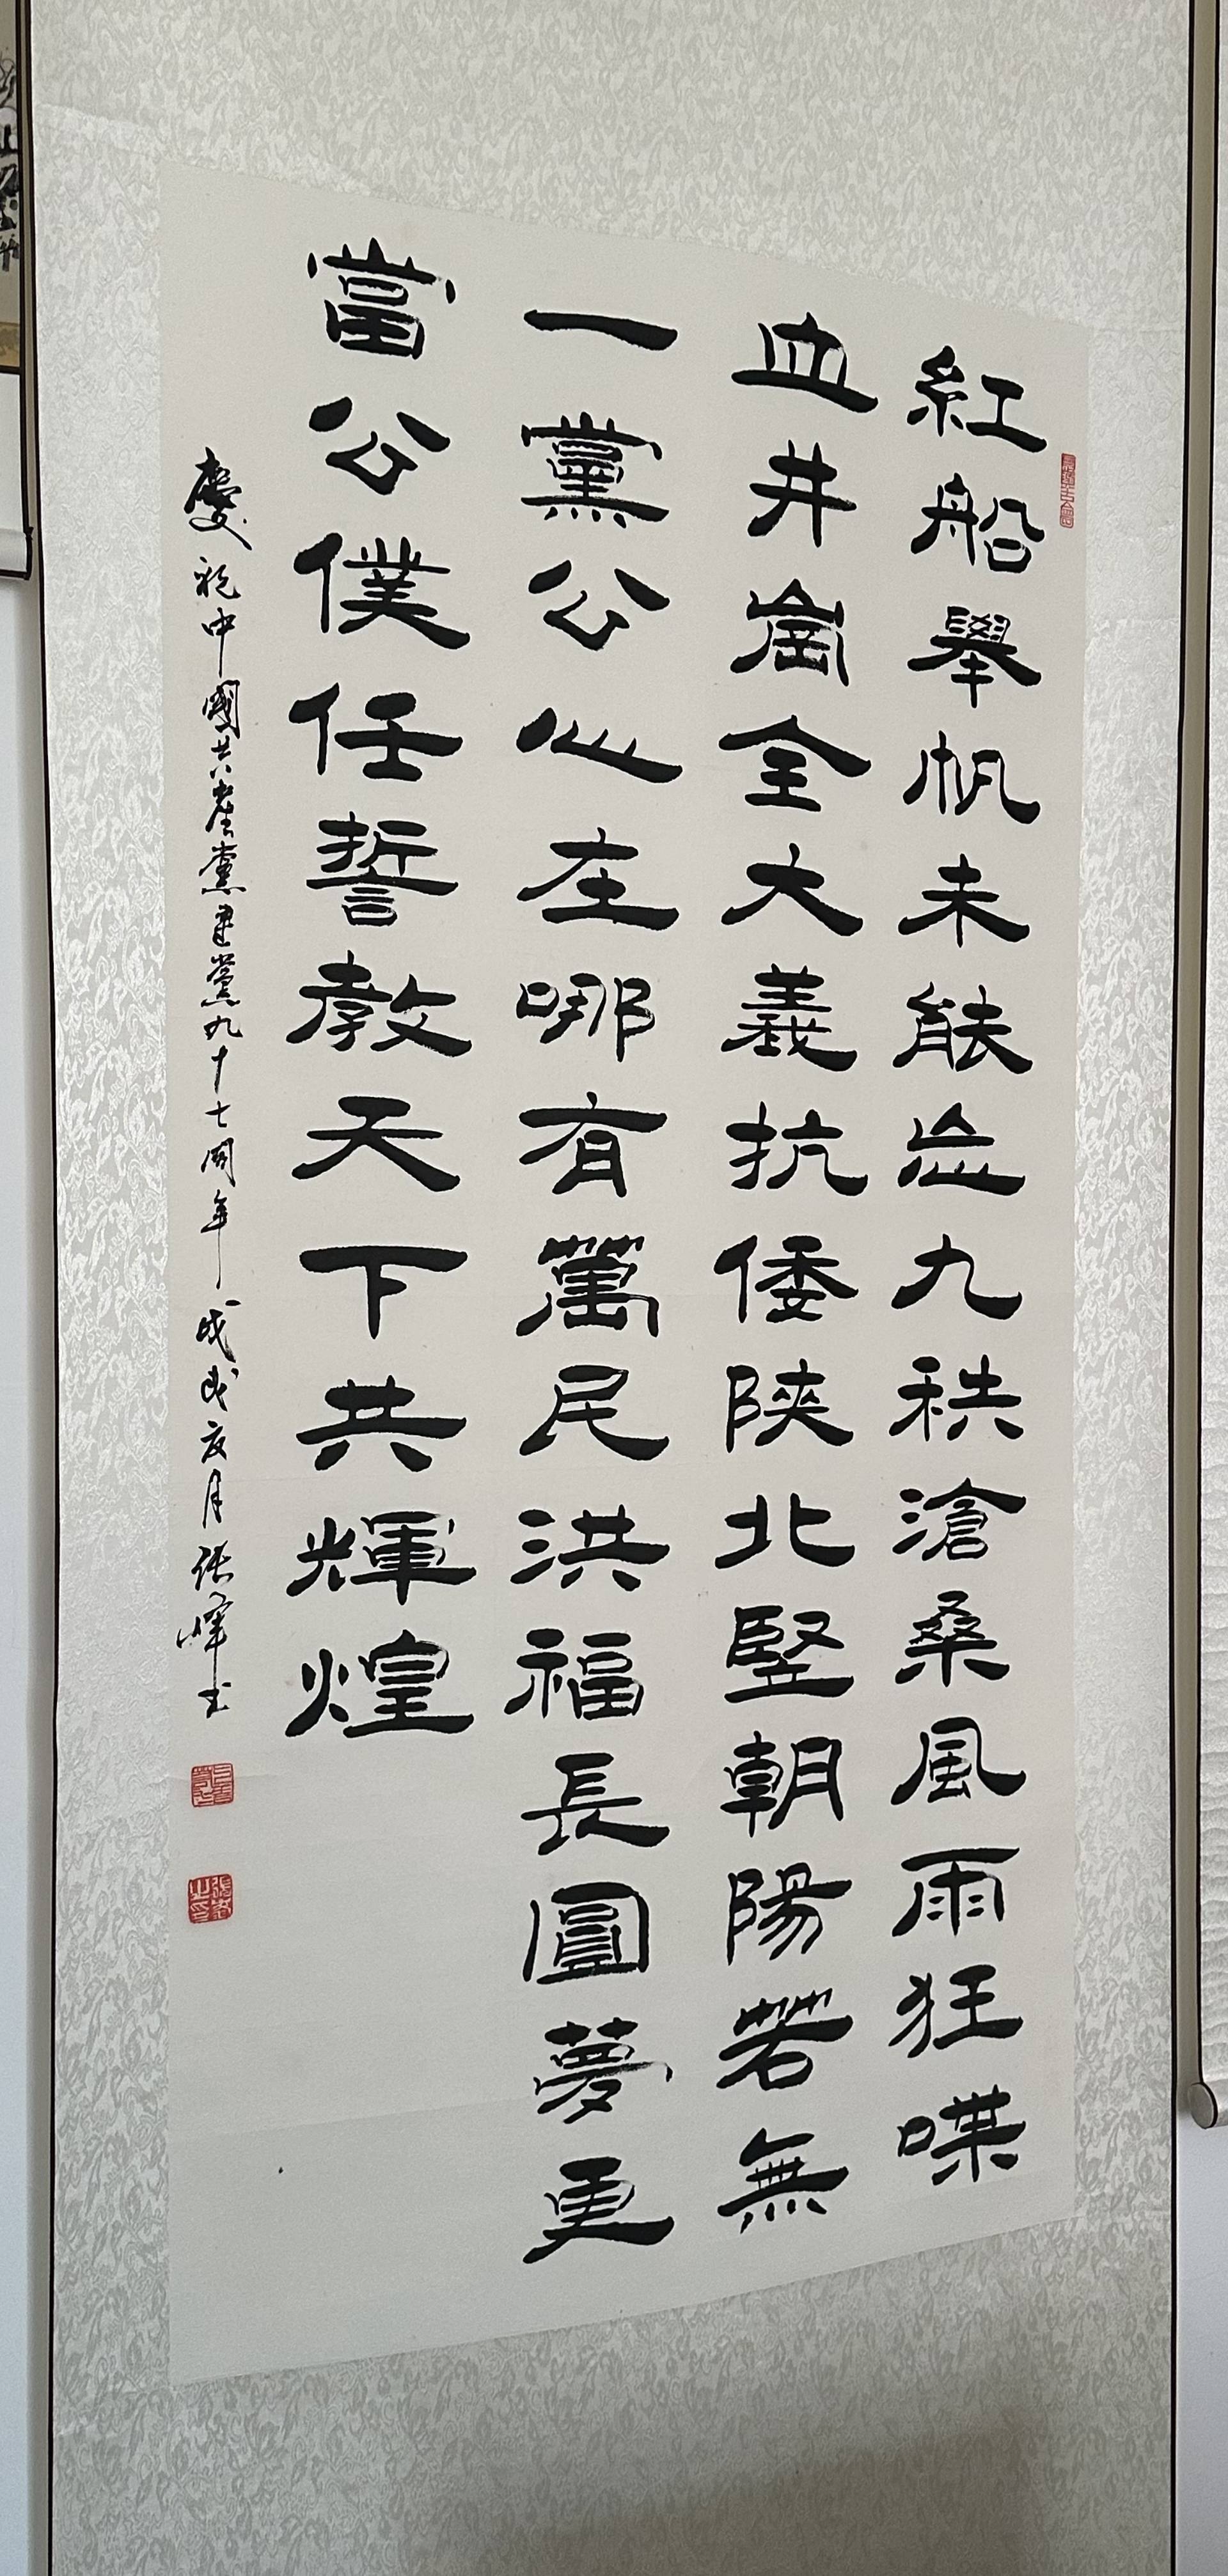 紅船舉帆未能忘九秩滄桑風雨狂喋
血井崗全大義抗倭陝北竪朝陽若無
一黨公心在哪有萬民洪福長圓夢更
當公僕任誓教天下共輝煌
慶祝中國共產黨建黨九十七周年戊戌夏月張峰书